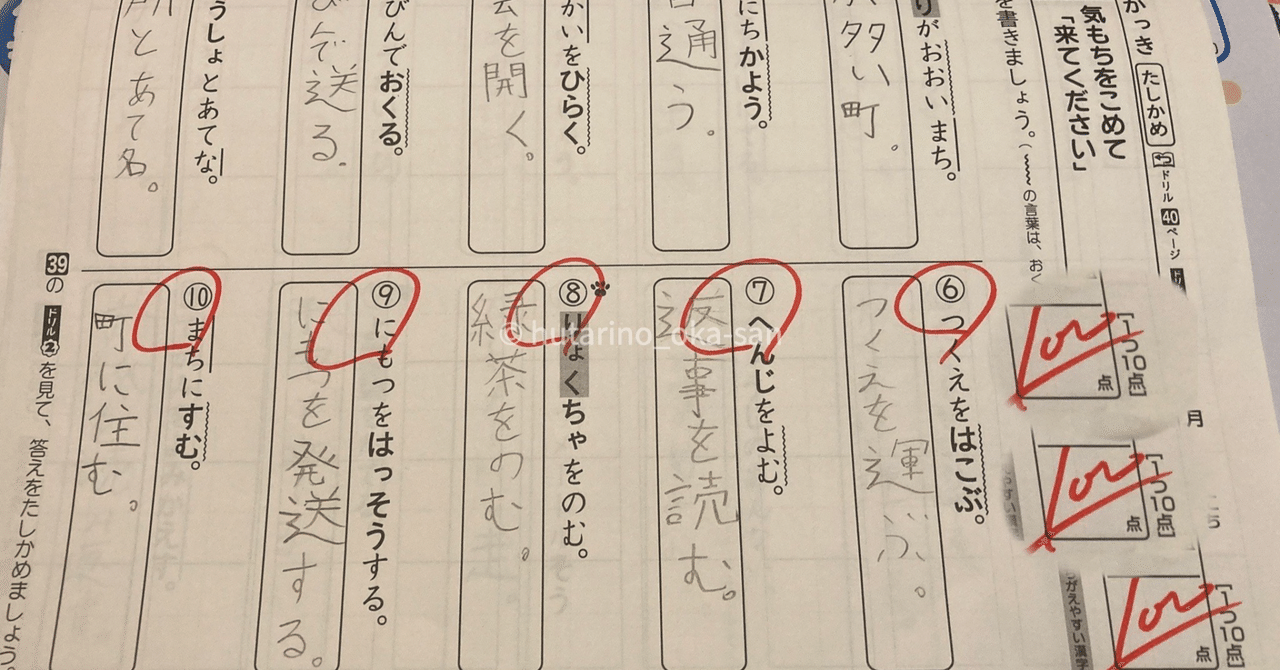 かっき たしかめ ドリル 40 ページ
気もちをこめて
「来てください」
を書きましょう。(の言葉は、おく
りがおおいまち。
が多い町。
にちかよう。
通う。
かいをひらく。
を開く。
びんでおくる。
んで送る。
うしょとあてな。
所とあて名。
[1つ10点]
100
点
[1つ10点]
100
点
[1つ10点]
100
点
月
⑥つくえをはこぶ。
つくえを運ぶ。
⑦へんじをよむ。
返事を読む。
⑧りょくちゃをのむ。
緑茶をのむ。
⑨にもつをはっそうする。
にもつを発送する。
⑩まちにすむ。
町に住む。
39の ドリル② を見て、答えをたしかめましょう。
© hutarino_oka-san